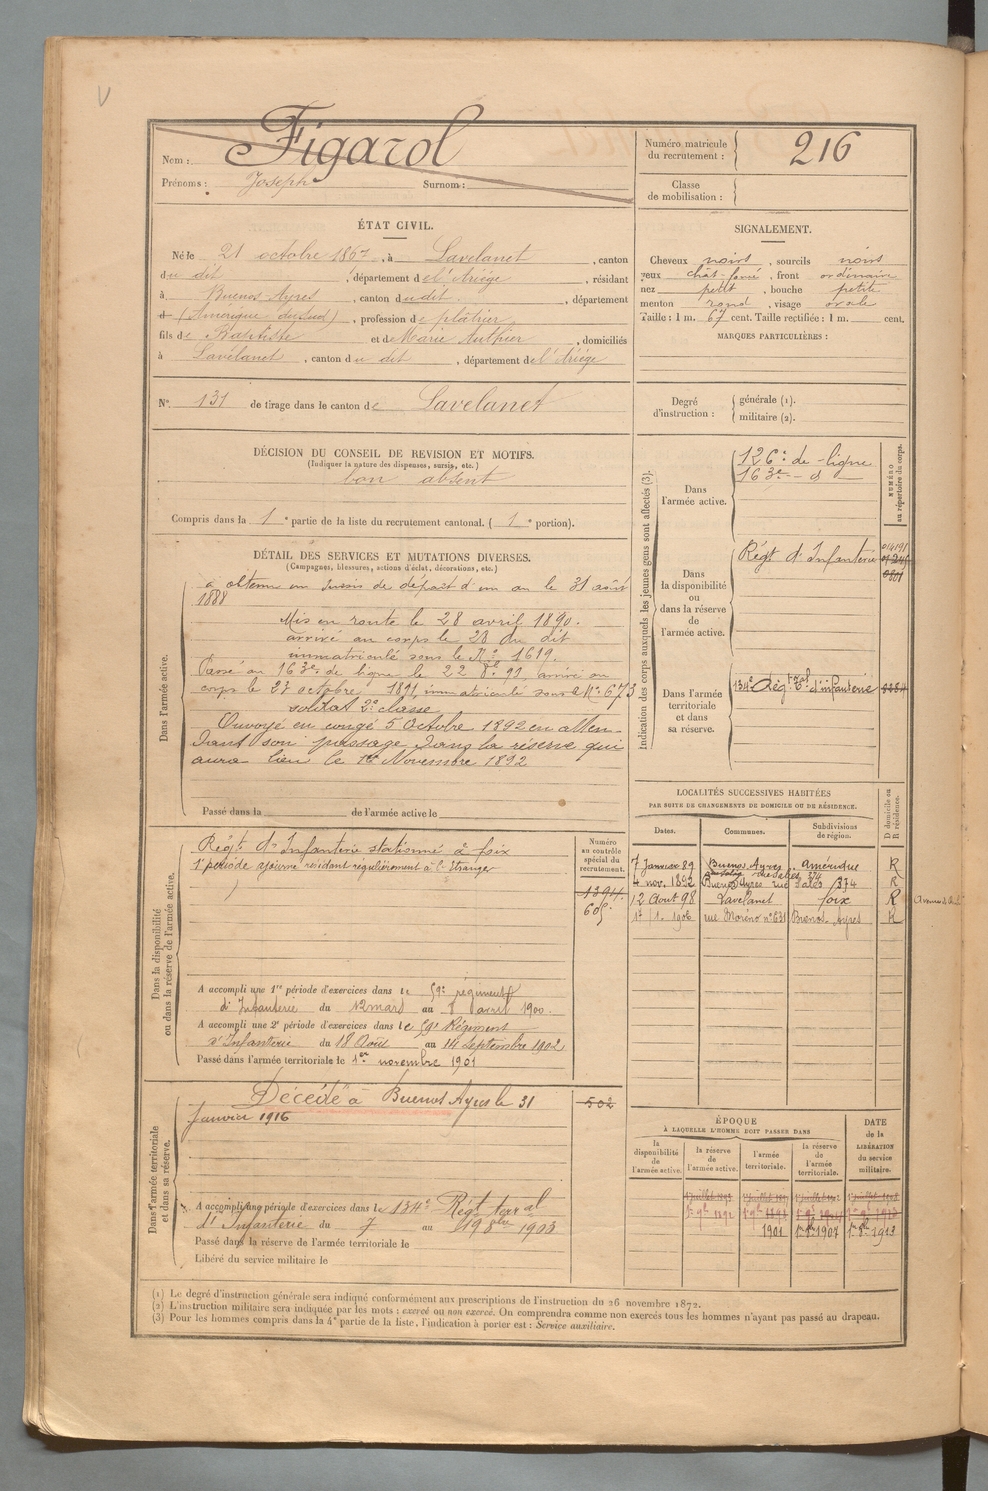 Nom : Figarol
Prénoms : Joseph Surnom :
Numéro matricule du recrutement : 216
Classe de mobilisation :
ÉTAT CIVIL.
Né le 21 octobre 1867, à Lavelanet, canton
du dit, département de l'Ariège, résidant
à Buenos Ayres, canton du dit, département
d (Amérique du Sud), profession de plâtrier
fils de Baptiste et de Marie Authier, domiciliés
à Lavelanet, canton du dit, département de l'Ariège
N° 131 de tirage dans le canton de Lavelanet
SIGNALEMENT.
Cheveux noirs, sourcils noirs
yeux chât-foncé, front ordinaire
nez petit, bouche petite
menton rond, visage ovale
Taille : 1 m. 67 cent. Taille rectifiée : 1 m. cent.
MARQUES PARTICULIÈRES :
Degré d'instruction : générale (1).
militaire (2).
DÉCISION DU CONSEIL DE REVISION ET MOTIFS.
(Indiquer la nature des dispenses, sursis, etc.)
bon absent
Compris dans la 1e partie de la liste du recrutement cantonal. (1e portion).
DÉTAIL DES SERVICES ET MUTATIONS DIVERSES.
(Campagnes, blessures, actions d'éclat, décorations, etc.)
Dans l'armée active.
a obtenu un sursis de départ d'un an le 31 août
1888
Mis en route le 28 avril 1890.
arrivé au corps le 28 du dit
immatriculé sous le N° 1619.
Passé au 163e de ligne le 22 8bre 91, arrivé au
corps le 27 octobre 1891 immatriculé sous le N° 673
soldat 2e classe
Envoyé en congé 5 Octobre 1892 en atten-
dant son passage dans la réserve qui
aura lieu le 1er Novembre 1892
Passé dans la de l'armée active le
Indication des corps auxquels les jeunes gens sont affectés (3).
NUMÉRO au répertoire du corps.
Dans l'armée active.
126e de ligne
163e - d
Dans la disponibilité ou dans la réserve de l'armée active.
Régt d'Infanterie
Dans l'armée territoriale et dans sa réserve.
134e Régt Tal d'infanterie
Dans la disponibilité ou dans la réserve de l'armée active.
Régt d'Infanterie stationné à Foix
1e période ajourné résidant régulièrement à l'étranger
Numéro au contrôle spécial du recrutement.
1394
605
A accompli une 1re période d'exercices dans le 59e régiment
d'Infanterie du 12 mars au 8 avril 1900.
A accompli une 2e période d'exercices dans le 59e Régiment
d'Infanterie du 18 Août au 14 Septembre 1902
Passé dans l'armée territoriale le 1er novembre 1901
LOCALITÉS SUCCESSIVES HABITÉES
PAR SUITE DE CHANGEMENTS DE DOMICILE OU DE RÉSIDENCE.
D domicile ou R résidence.
Dates. Communes. Subdivisions de région.
7 Janvier 89 Buenos Ayres amérique R
4 nov. 1892 Buenos Ayres rue Salas 374 R
12 Août 98 Lavelanet foix R
17 / 1. 1906 rue Moréno n° 631 Buenos Ayres R
Dans l'armée territoriale et dans sa réserve.
Décédé à Buenos Ayres le 31
Janvier 1916
502
A accompli une période d'exercices dans le 134e Régt terral
d'Infanterie du 7 au 19 8bre 1903
Passé dans la réserve de l'armée territoriale le
Libéré du service militaire le
ÉPOQUE
À LAQUELLE L'HOMME DOIT PASSER DANS
DATE de la LIBÉRATION du service militaire.
la disponibilité de l'armée active.
la réserve de l'armée active.
l'armée territoriale.
la réserve de l'armée territoriale.
1901 1er 8bre 1907 1er 8bre 1913
(1) Le degré d'instruction générale sera indiqué conformément aux prescriptions de l'instruction du 26 novembre 1872.
(2) L'instruction militaire sera indiquée par les mots : exercé ou non exercé. On comprendra comme non exercés tous les hommes n'ayant pas passé au drapeau.
(3) Pour les hommes compris dans la 4e partie de la liste, l'indication à porter est : Service auxiliaire.